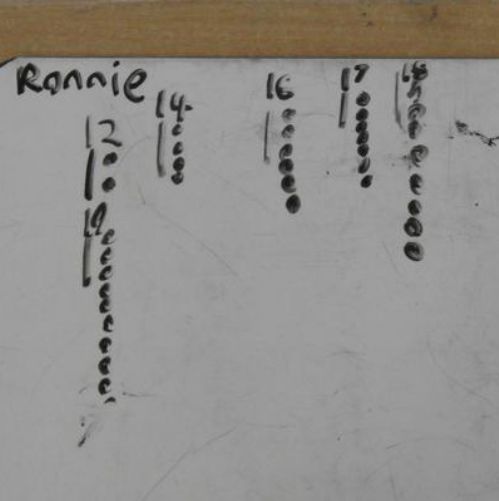 Ronnie
12
14
16
17
18
19